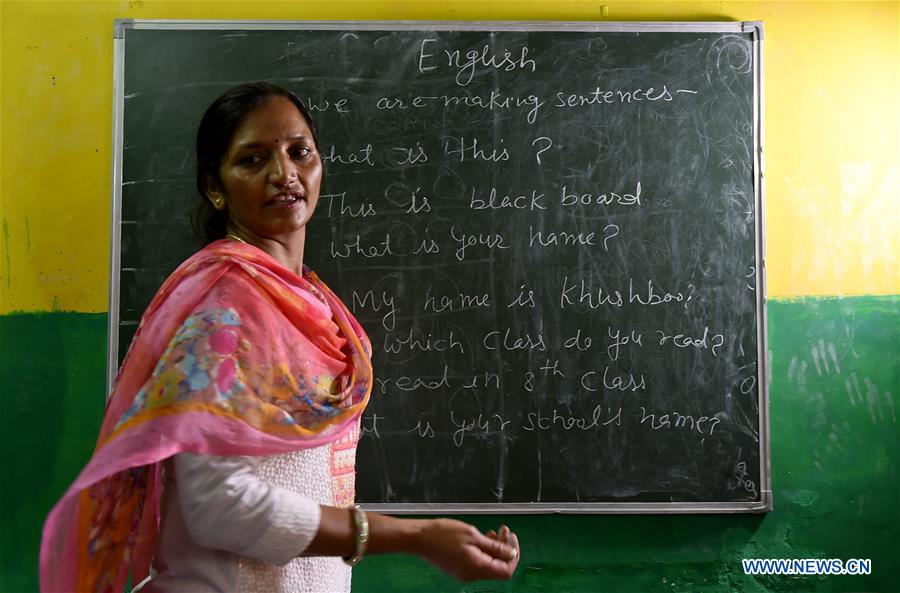 English
we are making sentences-
hat is this ?
This is black board.
what is your name?
My name is Khushboo?
which class do you read?
read in 8th class
t is your school's name?
WWW.NEWS.CN